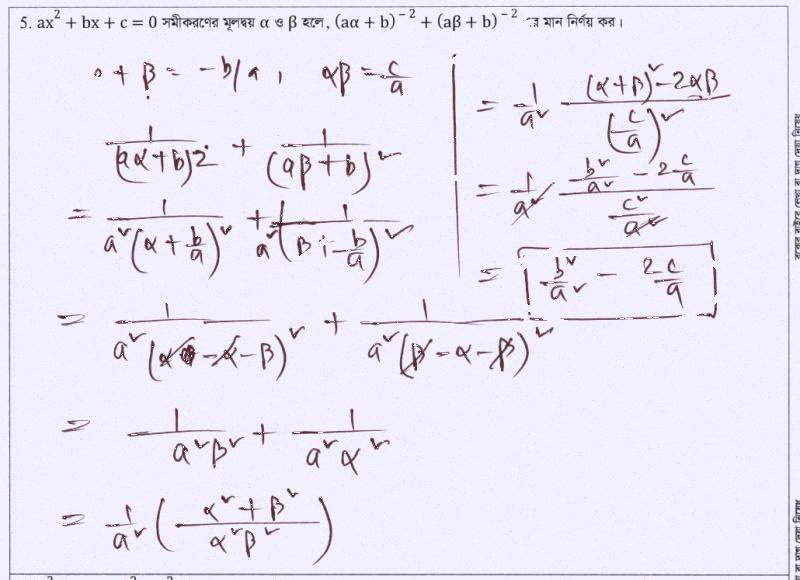 5. ax² + bx + c = 0 সমীকরণের মূলদ্বয় α ও β হলে, (aα + b)⁻² + (aβ + b)⁻² এর মান নির্ণয় কর।
α + β = -b/a, αβ = c/a
1/(aα+b)² + 1/(aβ+b)²
= 1/a²(α + b/a)² + 1/a²(β + b/a)²
= 1/a²(α - α - β)² + 1/a²(β - α - β)²
= 1/a²β² + 1/a²α²
= 1/a² (α² + β²/α²β²)
= 1/a² (α+β)² - 2αβ/(c/a)²
= 1/a² b²/a² - 2c/a/c²/a²
= b²/a² - 2c/a